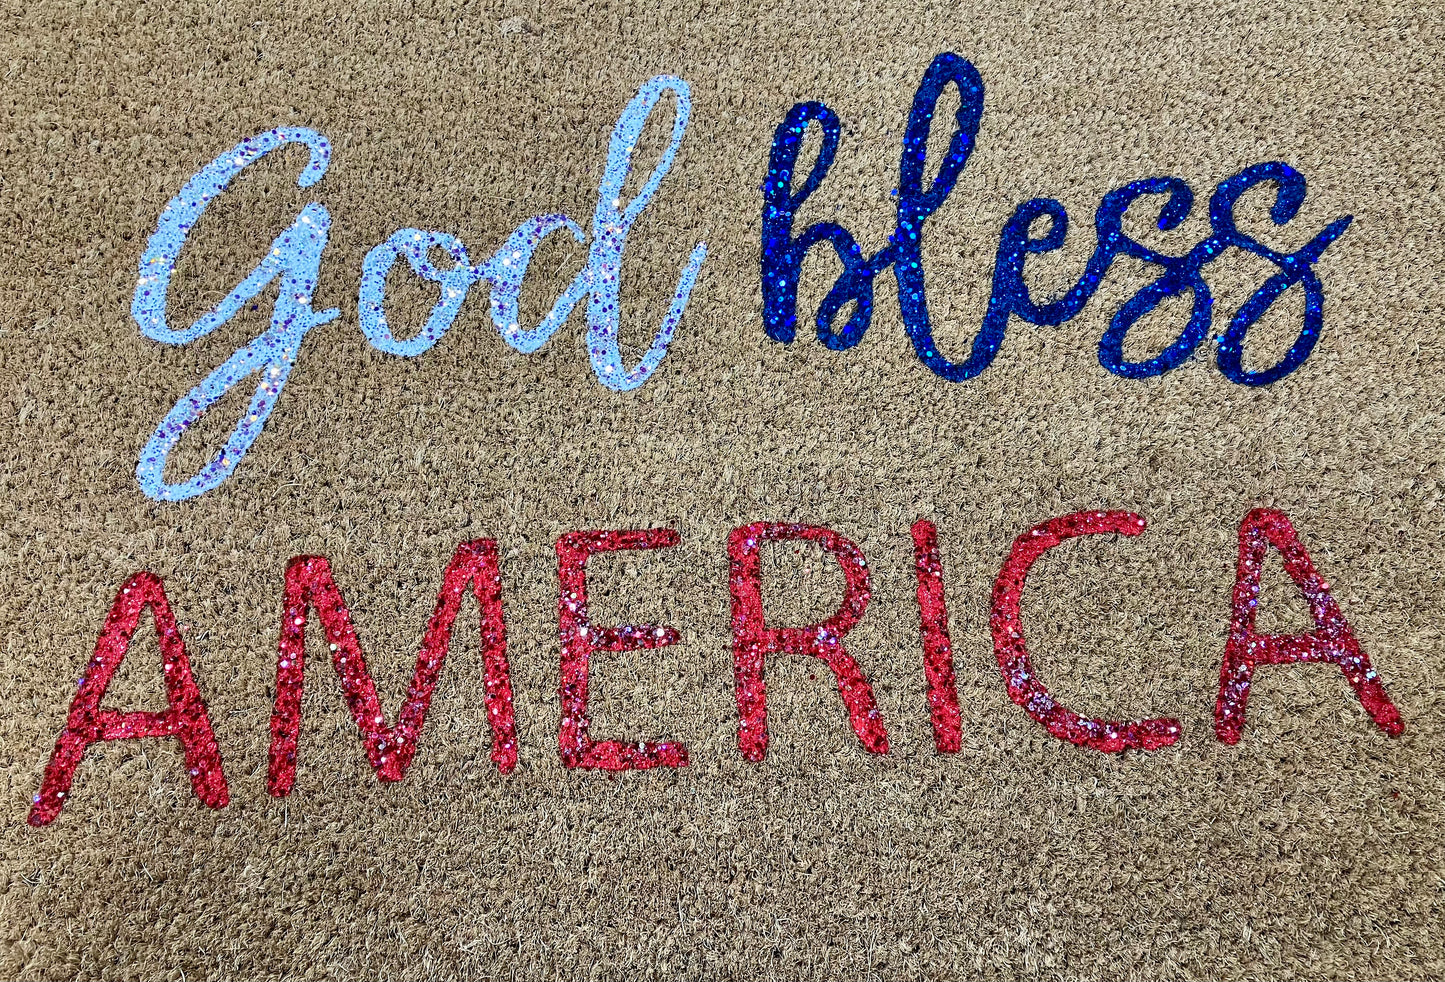 God bless
AMERICA